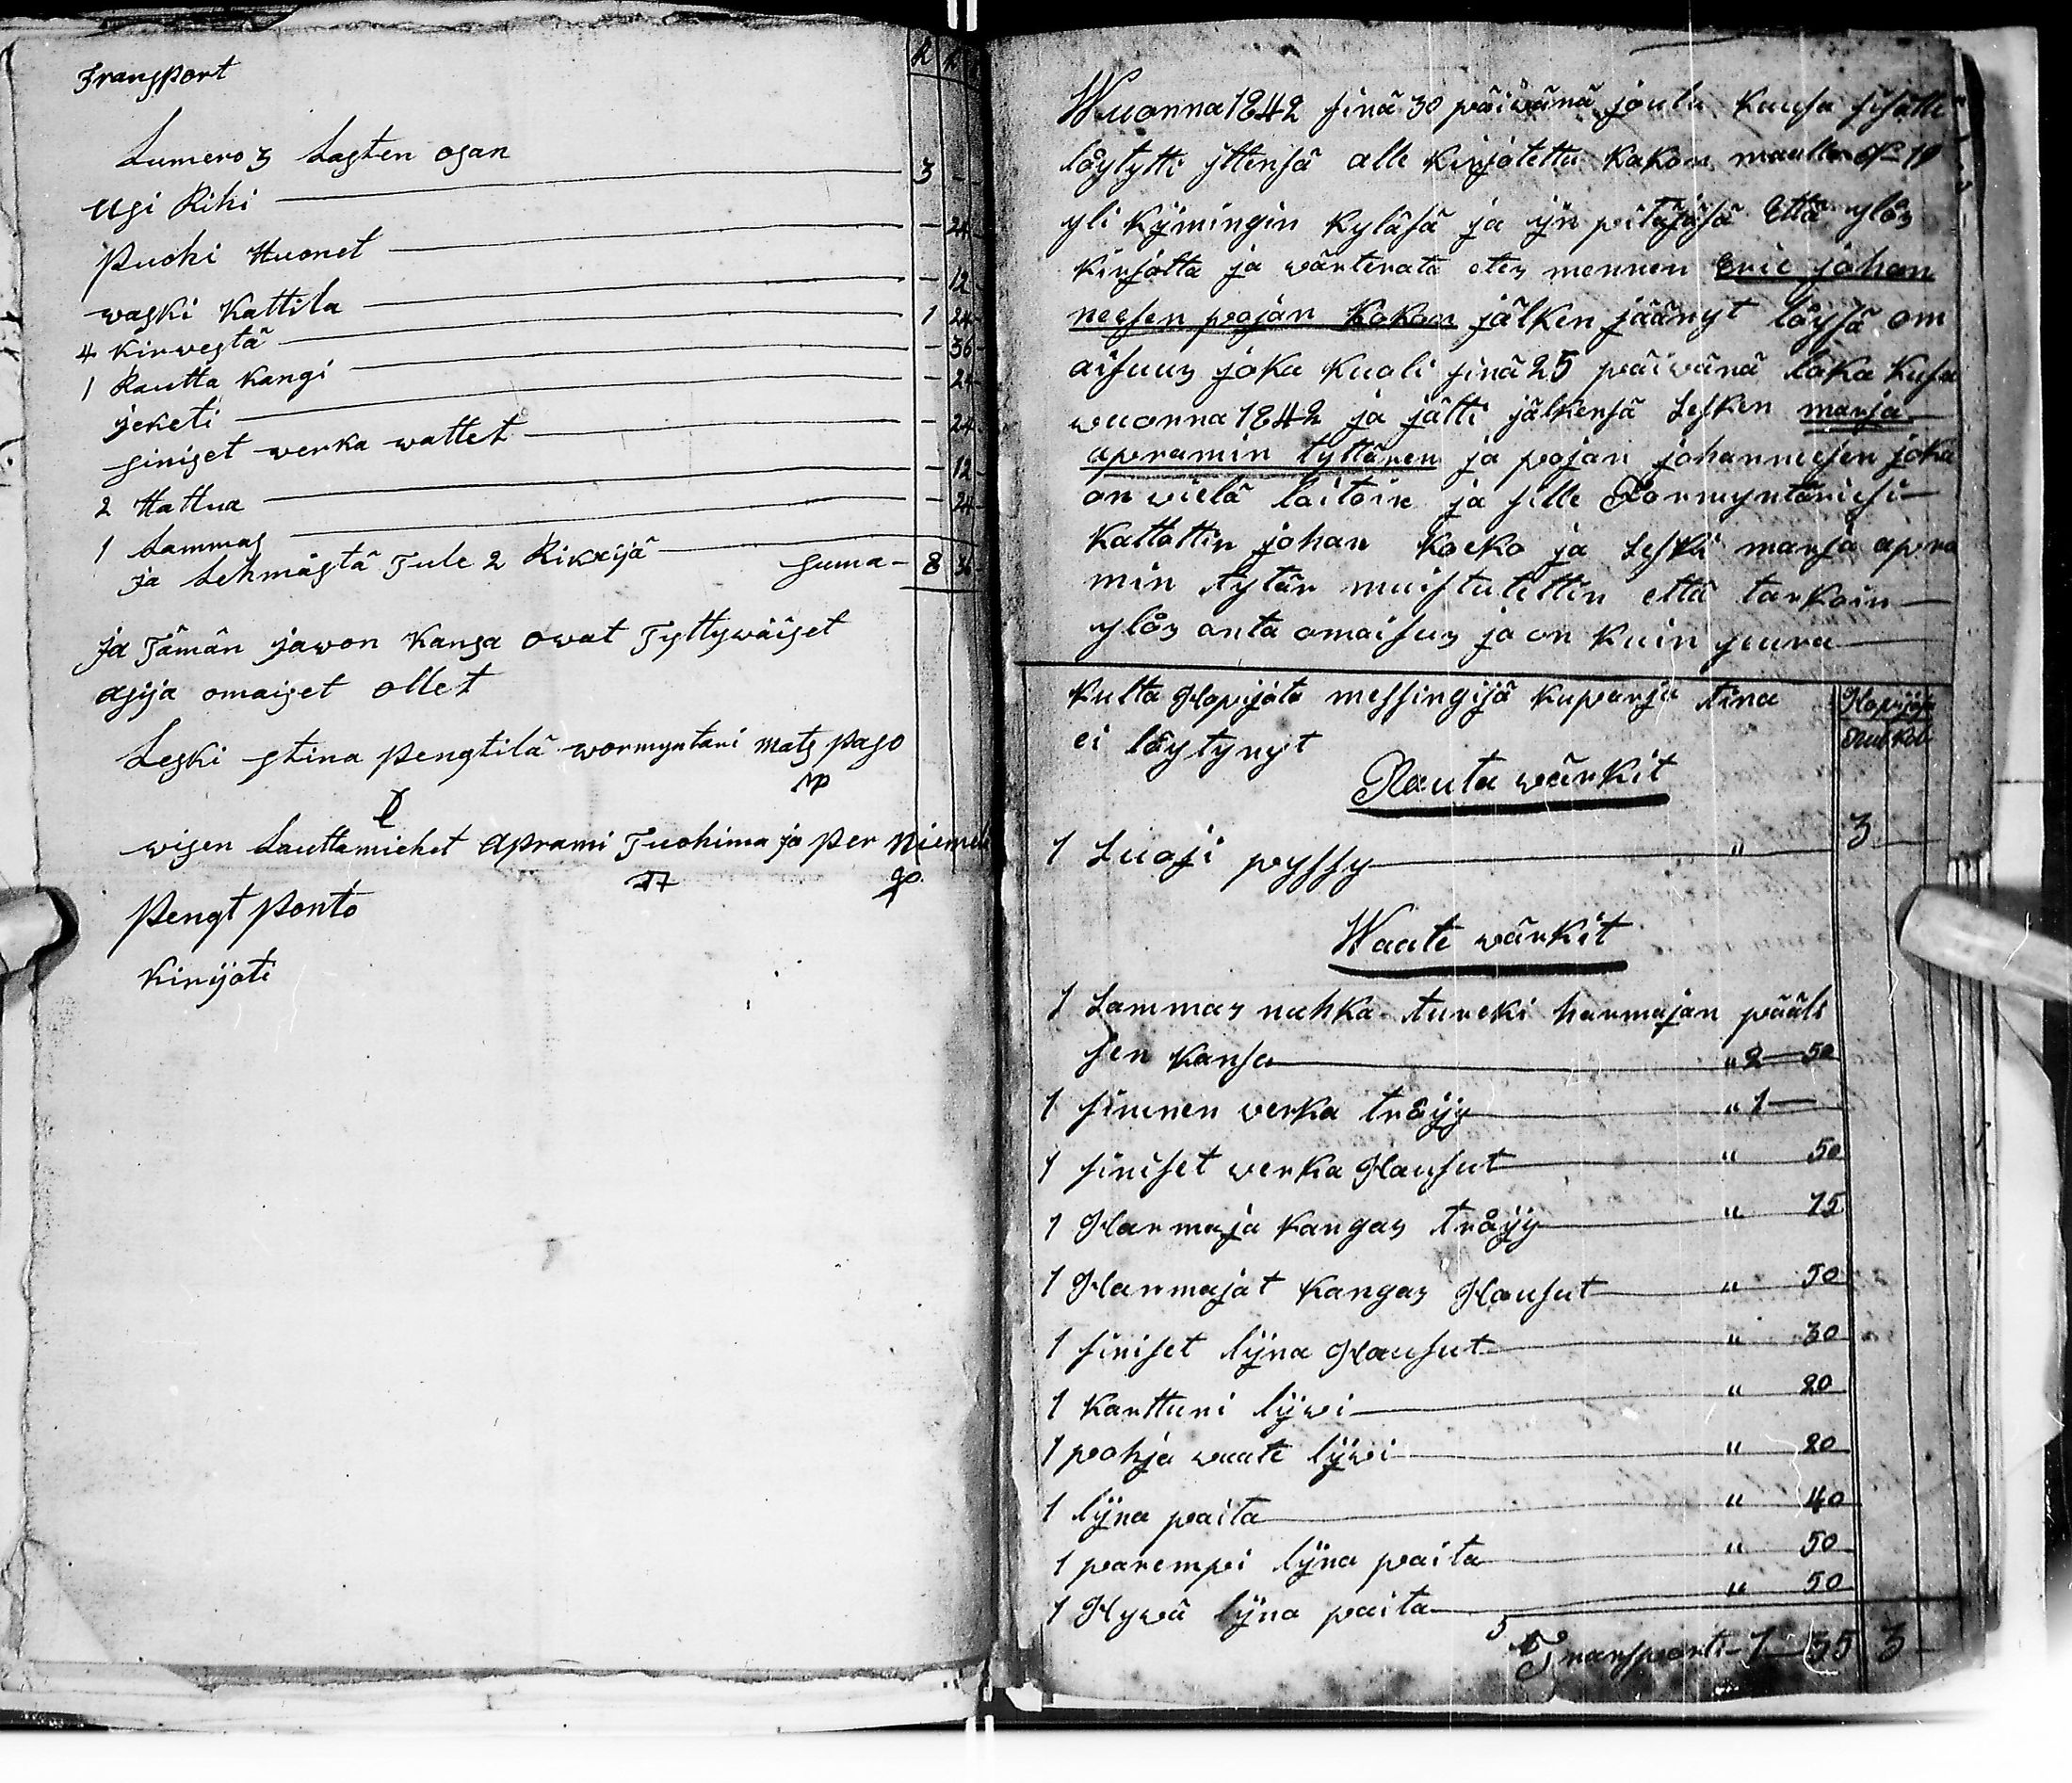 Transport
R K
Lumero 3 Lasten osan
Usi Rihi 3 - -
Puohi Huonet - 24 -
waski Kattila - 12
4 Kirwestä 1 24 -
1 Rautta Kangi - 36 -
jeketi - 24 -
siniset werka wattet - 24 -
2 Hattua - 12 -
1 Lammas - 24 -
ja Lehmästä Tule 2 Rikxijä suma - 8 36 -
ja Tämän jawon Kansa owat Tyttywäiset
asija omaiset ollet
Leski stina Pengtilä wormyntari mats Paso
wisen Lauttamiehet Aprami Tuohima ja Per Niemelä
Pengt Ponto
Kirijoti
Wuonna 1842 sinä 30 päiwänä joulu Kuusa
löytytti ittensä alle Kirjotettu Kokon maalla No 19
yli Kijmingin Kyläsä ja ijn pitäjäsä Että ylös
Kirjotta ja wärterata etes mennen Eric johan
neesen pojan Kokon jälken jäänyt löysä om
aisuus joka Kuoli sinä 25 päiwänä loka Kusa
wuonna 1842 ja jätti jälkensä Lesken marja
apramin tyttären ja pojan johanneesen joka
on wielä laitoin ja sille Formyntäriksi
Kattottin johan Kocko ja Leski marja apra
min tytär muistutettin että tarkoin
ylös anta omaisus ja on Kuin seura
Kulta Hopijota messingijä Kuparja tina
ei löytynyt
Hopijasa
Rub Kob
Rauta wärkit
1 Luoji pyssy " 3
Waate wärkit
1 Lammas nahka turcki harmajan pääli
sen Kansa " 2 50
1 sininen verka tröijy " 1
1 siniset verka Housut " 50
1 Harmaja Kangas tröijy " 75
1 Harmajat Kangas Housut " 50
1 siniset lijna Housut " 30
1 Karttuni lijwi " 20
1 pohja waate lijwi " 20
1 lijna paita " 40
1 parempi lijna paita " 50
1 Hywä lijna paita " 50
Transporti 7 55 3